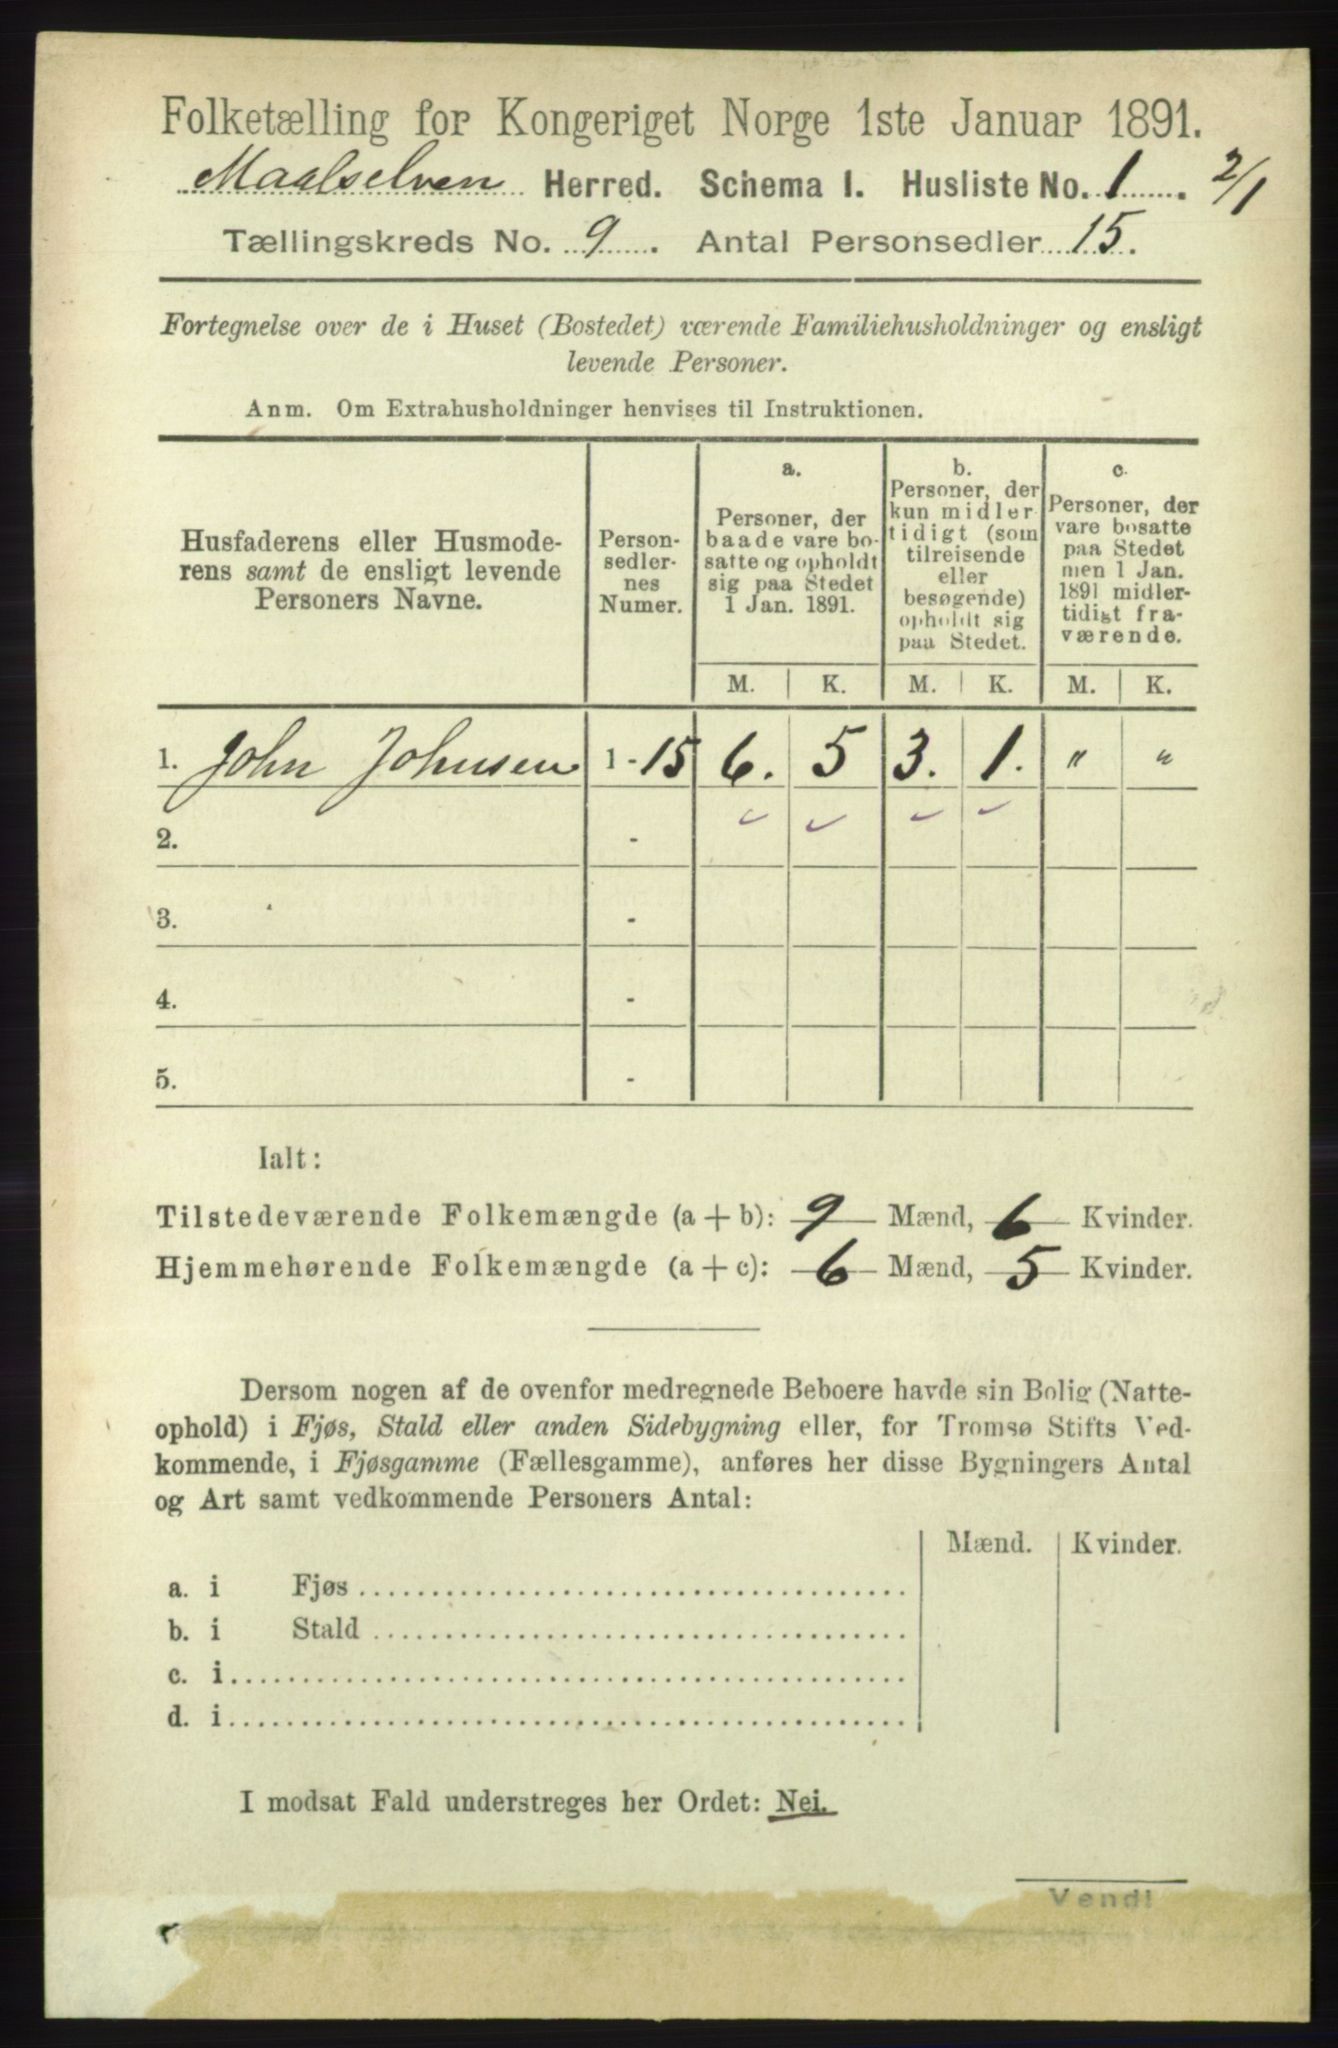 Folketælling for Kongeriget Norge 1ste Januar 1891.
Maalselven Herred. Schema I. Husliste No. 1. 2/1
Tællingskreds No. 9. Antal Personsedler 15.
Fortegnelse over de i Huset (Bostedet) værende Familiehusholdninger og ensligt
levende Personer.
Anm. Om Extrahusholdninger henvises til Instruktionen.
Husfaderens eller Husmode-
rens samt de ensligt levende
Personers Navne.
Person-
sedler-
nes
Numer.
a.
Personer, der
baade vare bo-
satte og opholdt
sig paa Stedet
1 Jan. 1891.
b.
Personer, der
kun midler-
tidigt (som
tilreisende
eller
besøgende)
opholdt sig
paa Stedet.
c.
Personer, der
vare bosatte
paa Stedet
men 1 Jan.
1891 midler-
tidigt fra-
værende.
M. K. M. K. M. K.
1. John Johnsen 1-15 6. 5 3. 1. " "
2. -
3. -
4. -
5. -
Ialt:
Tilstedeværende Folkemængde (a+b): 9 Mænd, 6 Kvinder.
Hjemmehørende Folkemængde (a+c): 6 Mænd, 5 Kvinder.
Dersom nogen af de ovenfor medregnede Beboere havde sin Bolig (Natte-
ophold) i Fjøs, Stald eller anden Sidebygning eller, for Tromsø Stifts Ved-
kommende, i Fjøsgamme (Fællesgamme), anføres her disse Bygningers Antal
og Art samt vedkommende Personers Antal:
Mænd. Kvinder.
a. i Fjøs
b. i Stald
c. i
d. i
I modsat Fald understreges her Ordet: Nei.
Vend!